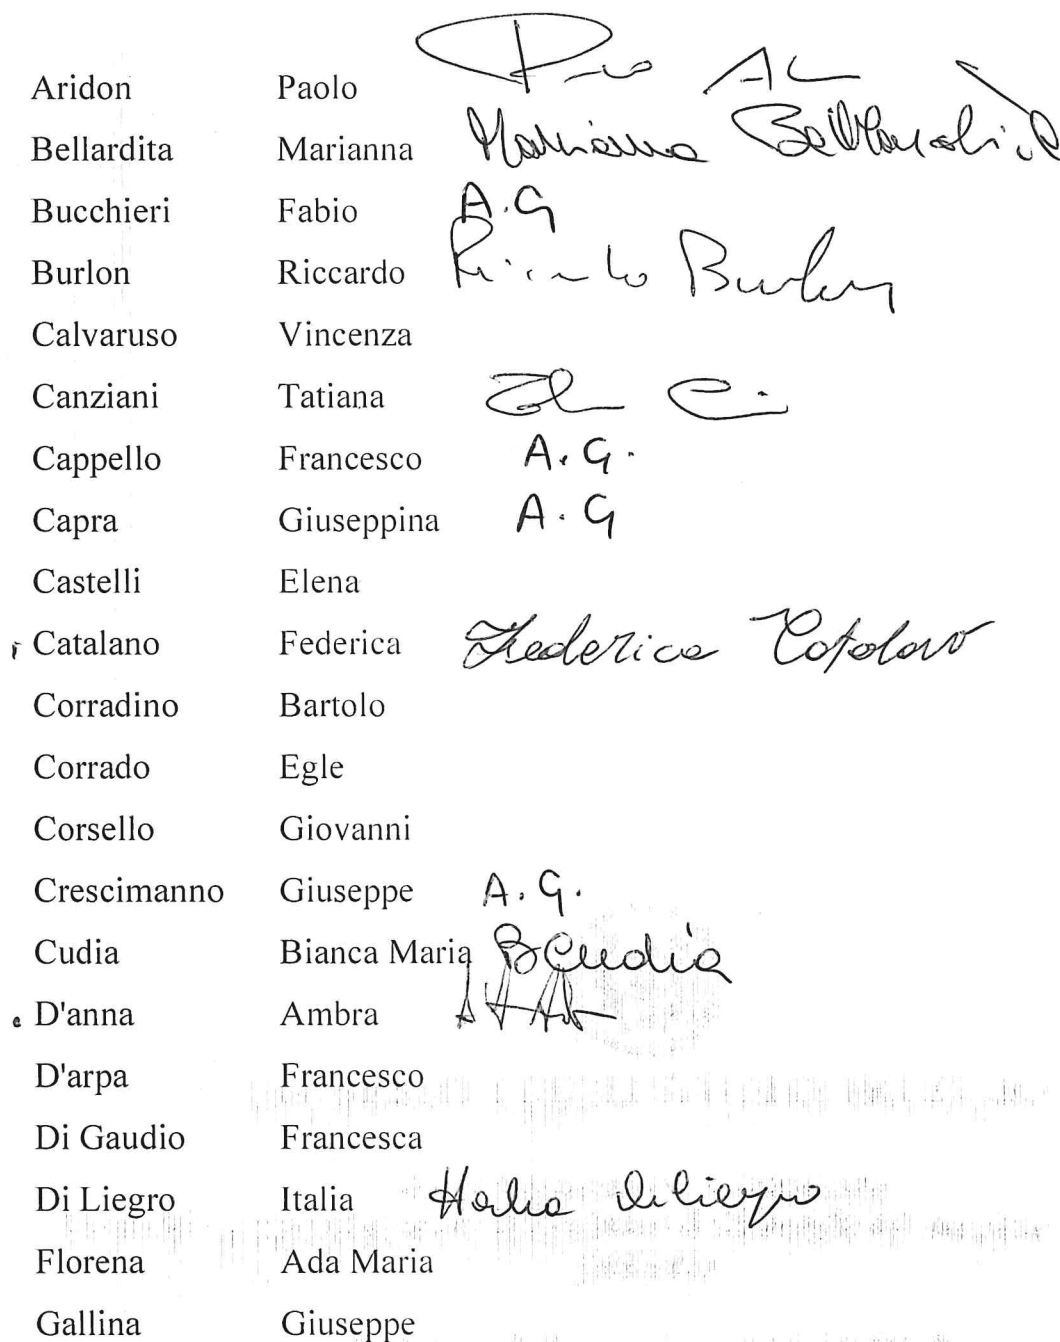 Aridon Paolo
Bellardita Marianna Marianna Bellardita
Bucchieri Fabio A.G
Burlon Riccardo Riccardo Burlon
Calvaruso Vincenza
Canziani Tatiana
Cappello Francesco A.G.
Capra Giuseppina A.G
Castelli Elena
Catalano Federica Federica Catalano
Corradino Bartolo
Corrado Egle
Corsello Giovanni
Crescimanno Giuseppe A.G.
Cudia Bianca Maria BCudia
D'anna Ambra
D'arpa Francesco
Di Gaudio Francesca
Di Liegro Italia Italia Di Liegro
Florena Ada Maria
Gallina Giuseppe